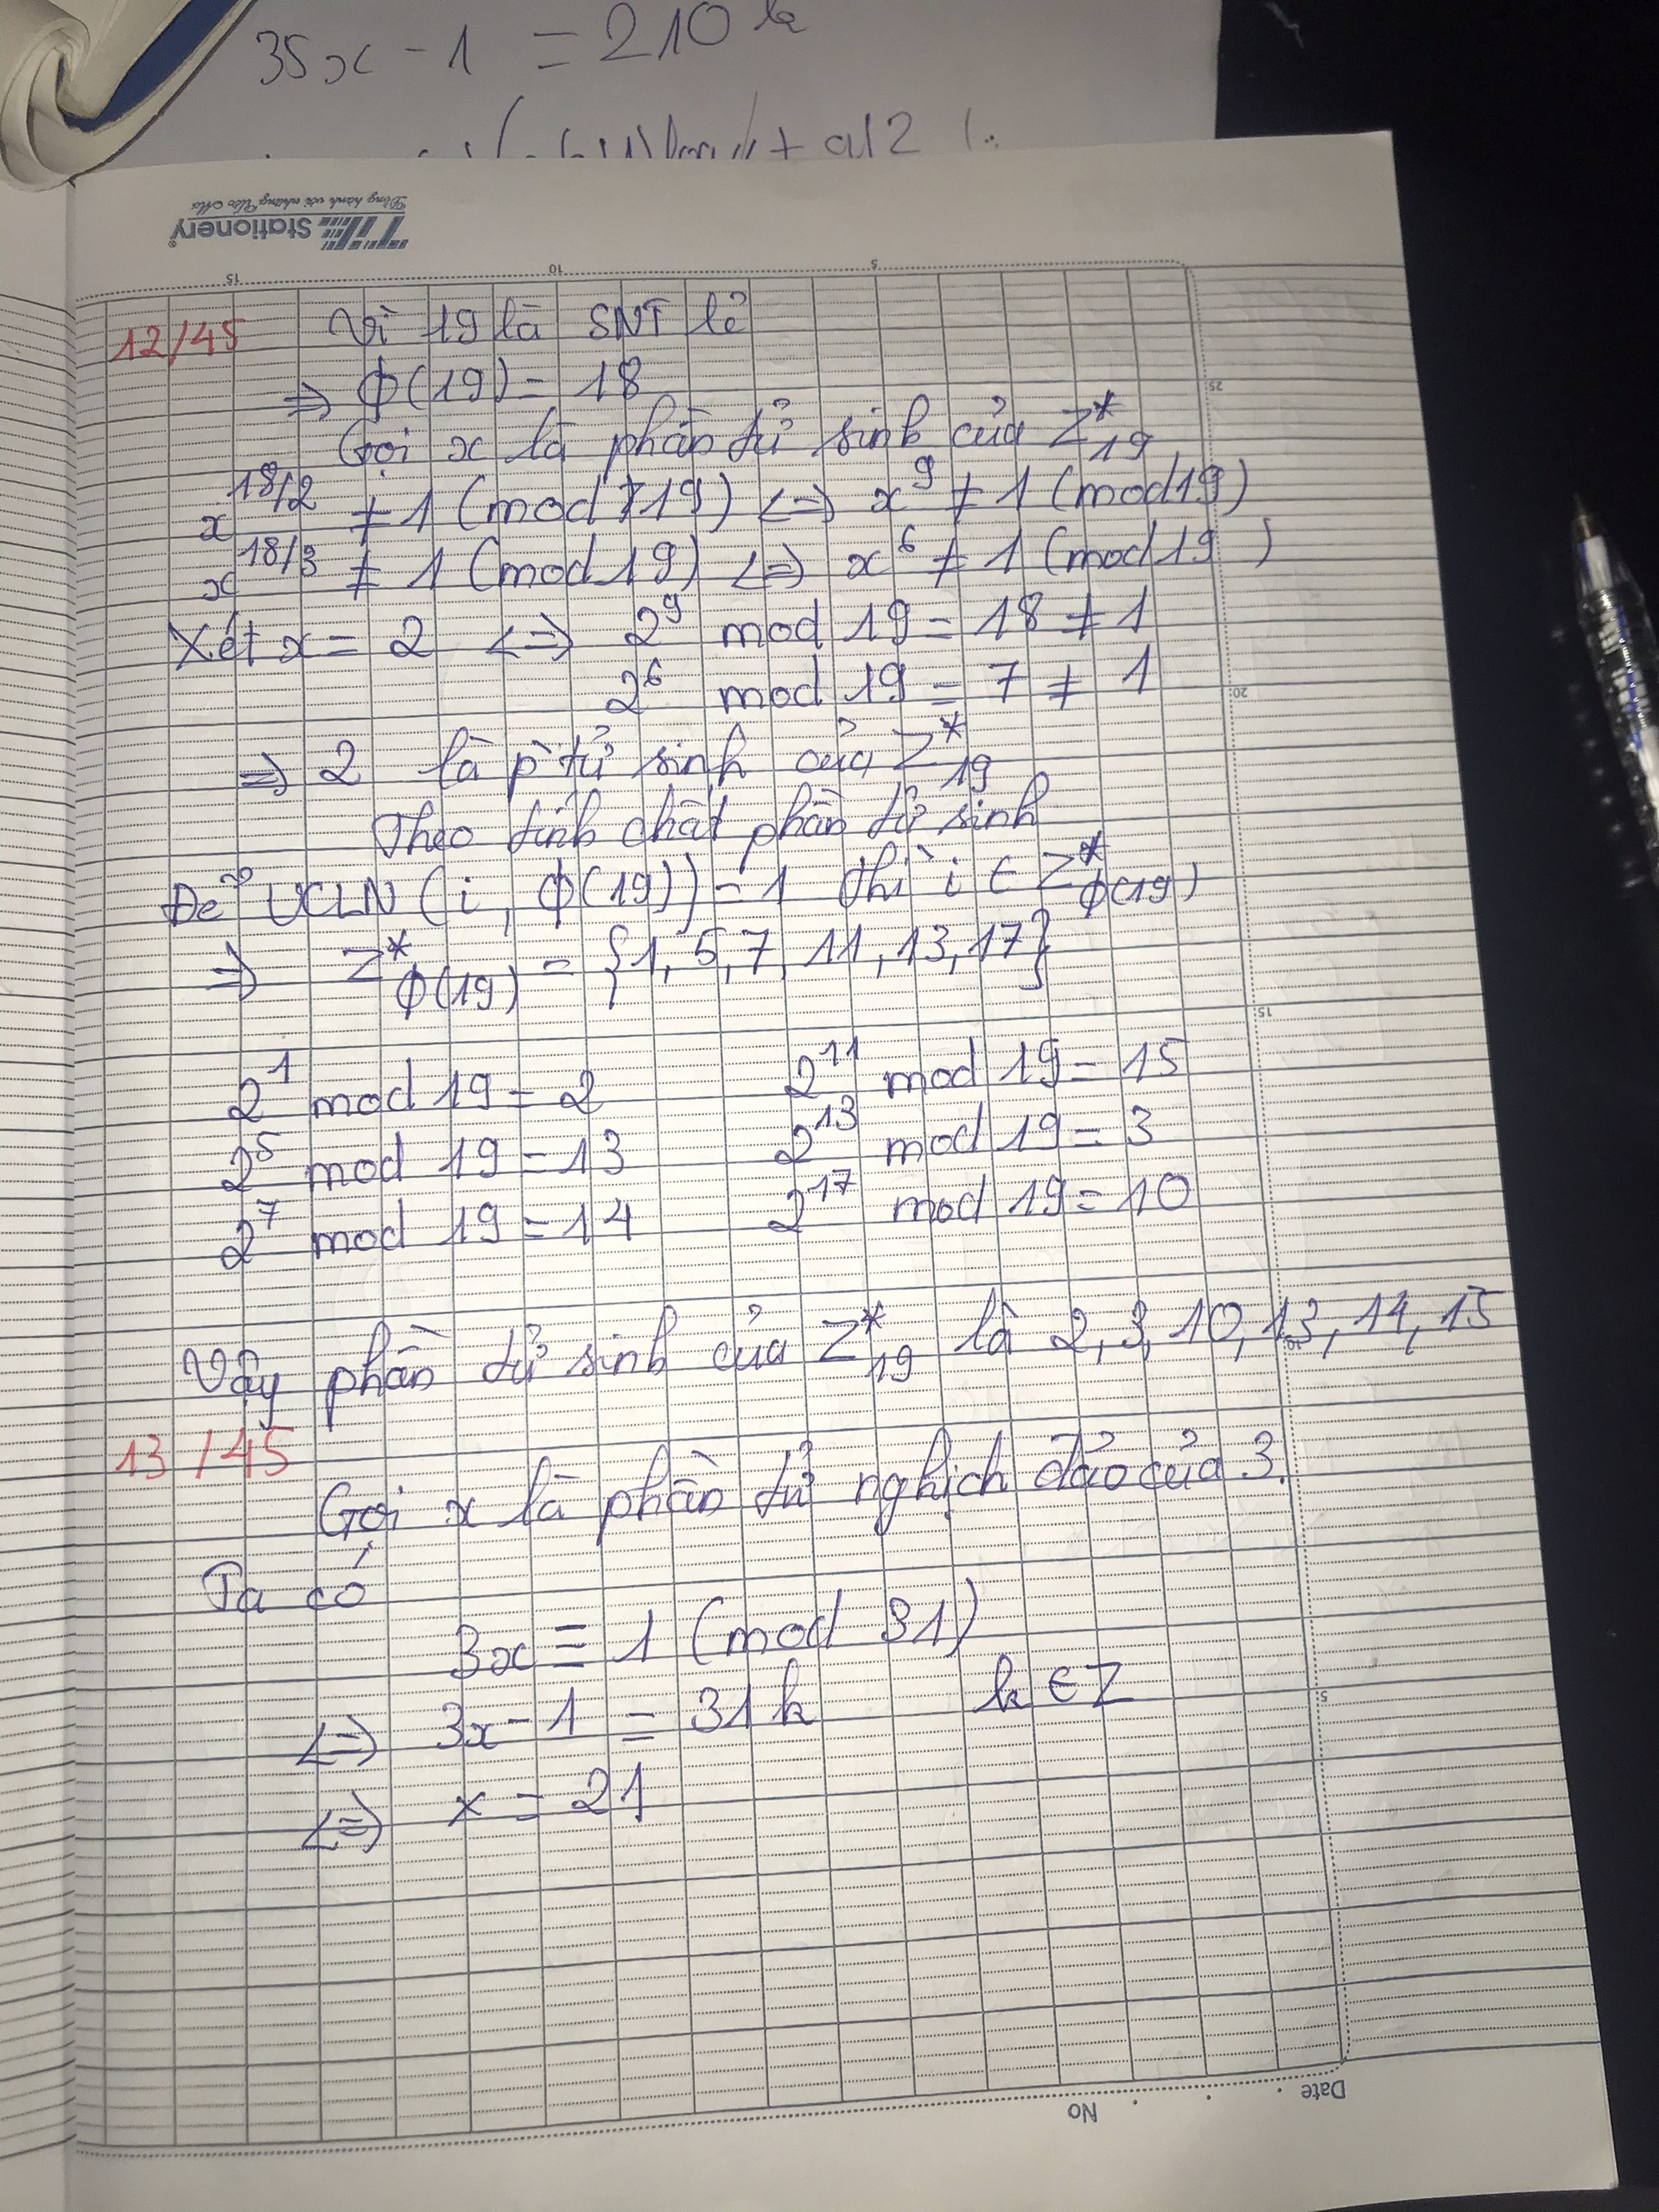 35x - 1 = 210k
TTL Stationery
Đồng hành với những Ước Mơ
15 10 5
12/45 Vì 19 là SNT lẻ
⇒ ϕ(19) = 18
Gọi x là phần tử sinh của Z*19
x^18/2 ≠ 1 (mod 19) <=> x^9 ≠ 1 (mod 19)
x^18/3 ≠ 1 (mod 19) <=> x^6 ≠ 1 (mod 19)
Xét x = 2 <=> 2^9 mod 19 = 18 ≠ 1
2^6 mod 19 = 7 ≠ 1
=> 2 là p tử sinh của Z*19
Theo tính chất phần tử sinh
Để UCLN (i, ϕ(19)) = 1 thì i ∈ Z*ϕ(19)
=> Z*ϕ(19) = {1, 5, 7, 11, 13, 17}
2^1 mod 19 = 2 2^11 mod 19 = 15
2^5 mod 19 = 13 2^13 mod 19 = 3
2^7 mod 19 = 14 2^17 mod 19 = 10
Vậy phần tử sinh của Z*19 là 2, 3, 10, 13, 14, 15
13/45
Gọi x là phần tử nghịch đảo của 3.
Ta có
3x ≡ 1 (mod 31)
<=> 3x - 1 = 31k k ∈ Z
<=> x = 21
25
20
15
5
Date
No